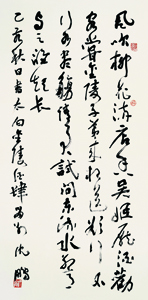 風吹柳花滿店香吳姬壓酒勸
客嘗金陵子弟來相送欲行不
行各盡觴請君試問東流水別意
与之誰短長
亥秋日書太白金陵酒肆留別 沈鵬